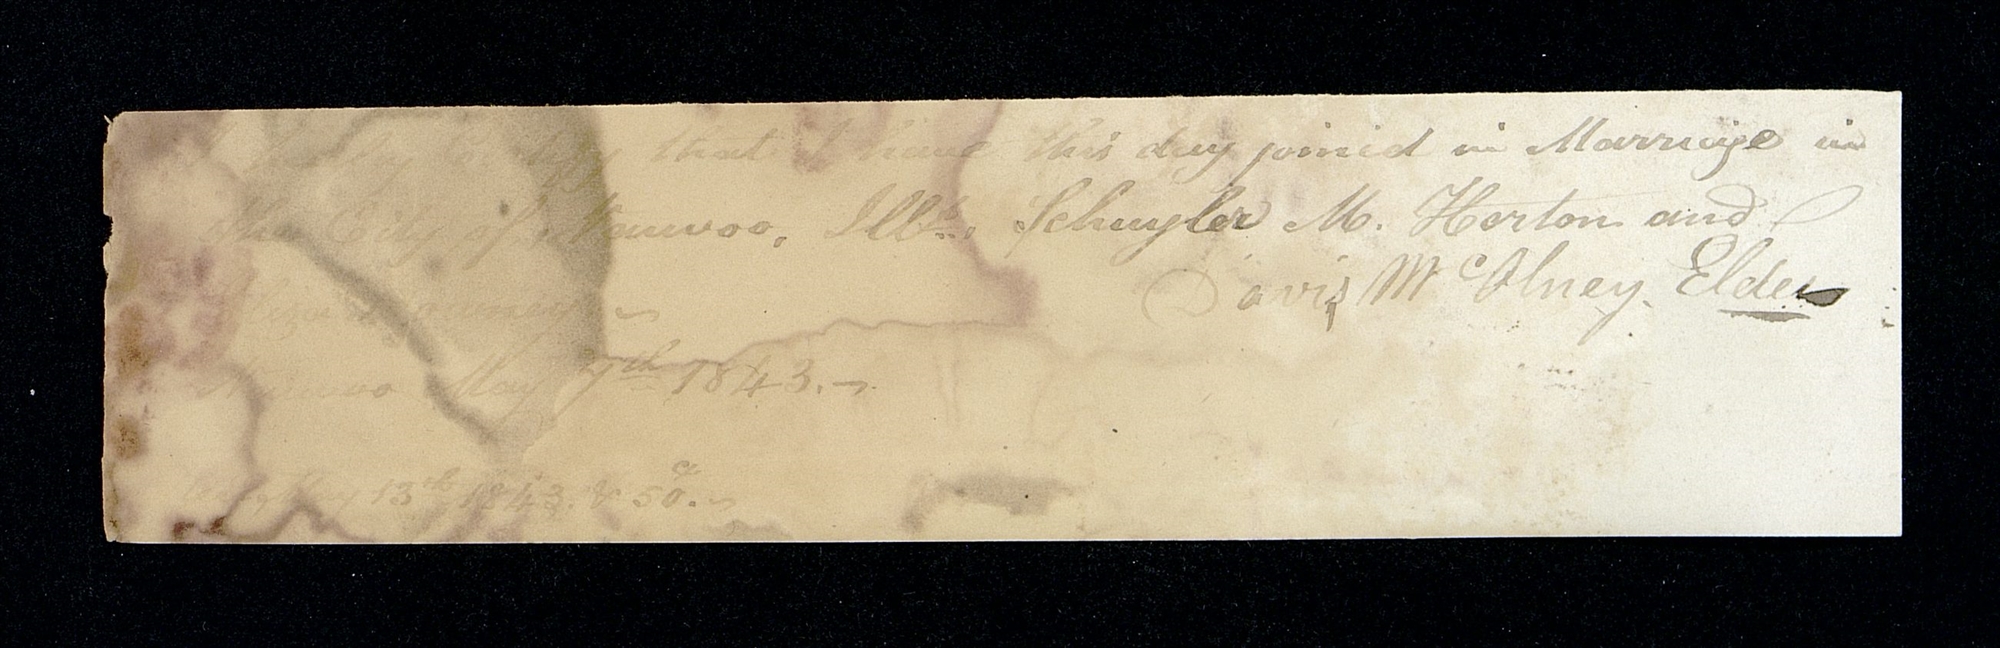 hereby certify that I have this day joined in Marriage in
the City of Nauvoo, Ills., Schuyler M. Horton and
Davis McOlney, Elder
Nauvoo May 7th 1843.
May 13th 1843. & 50c.